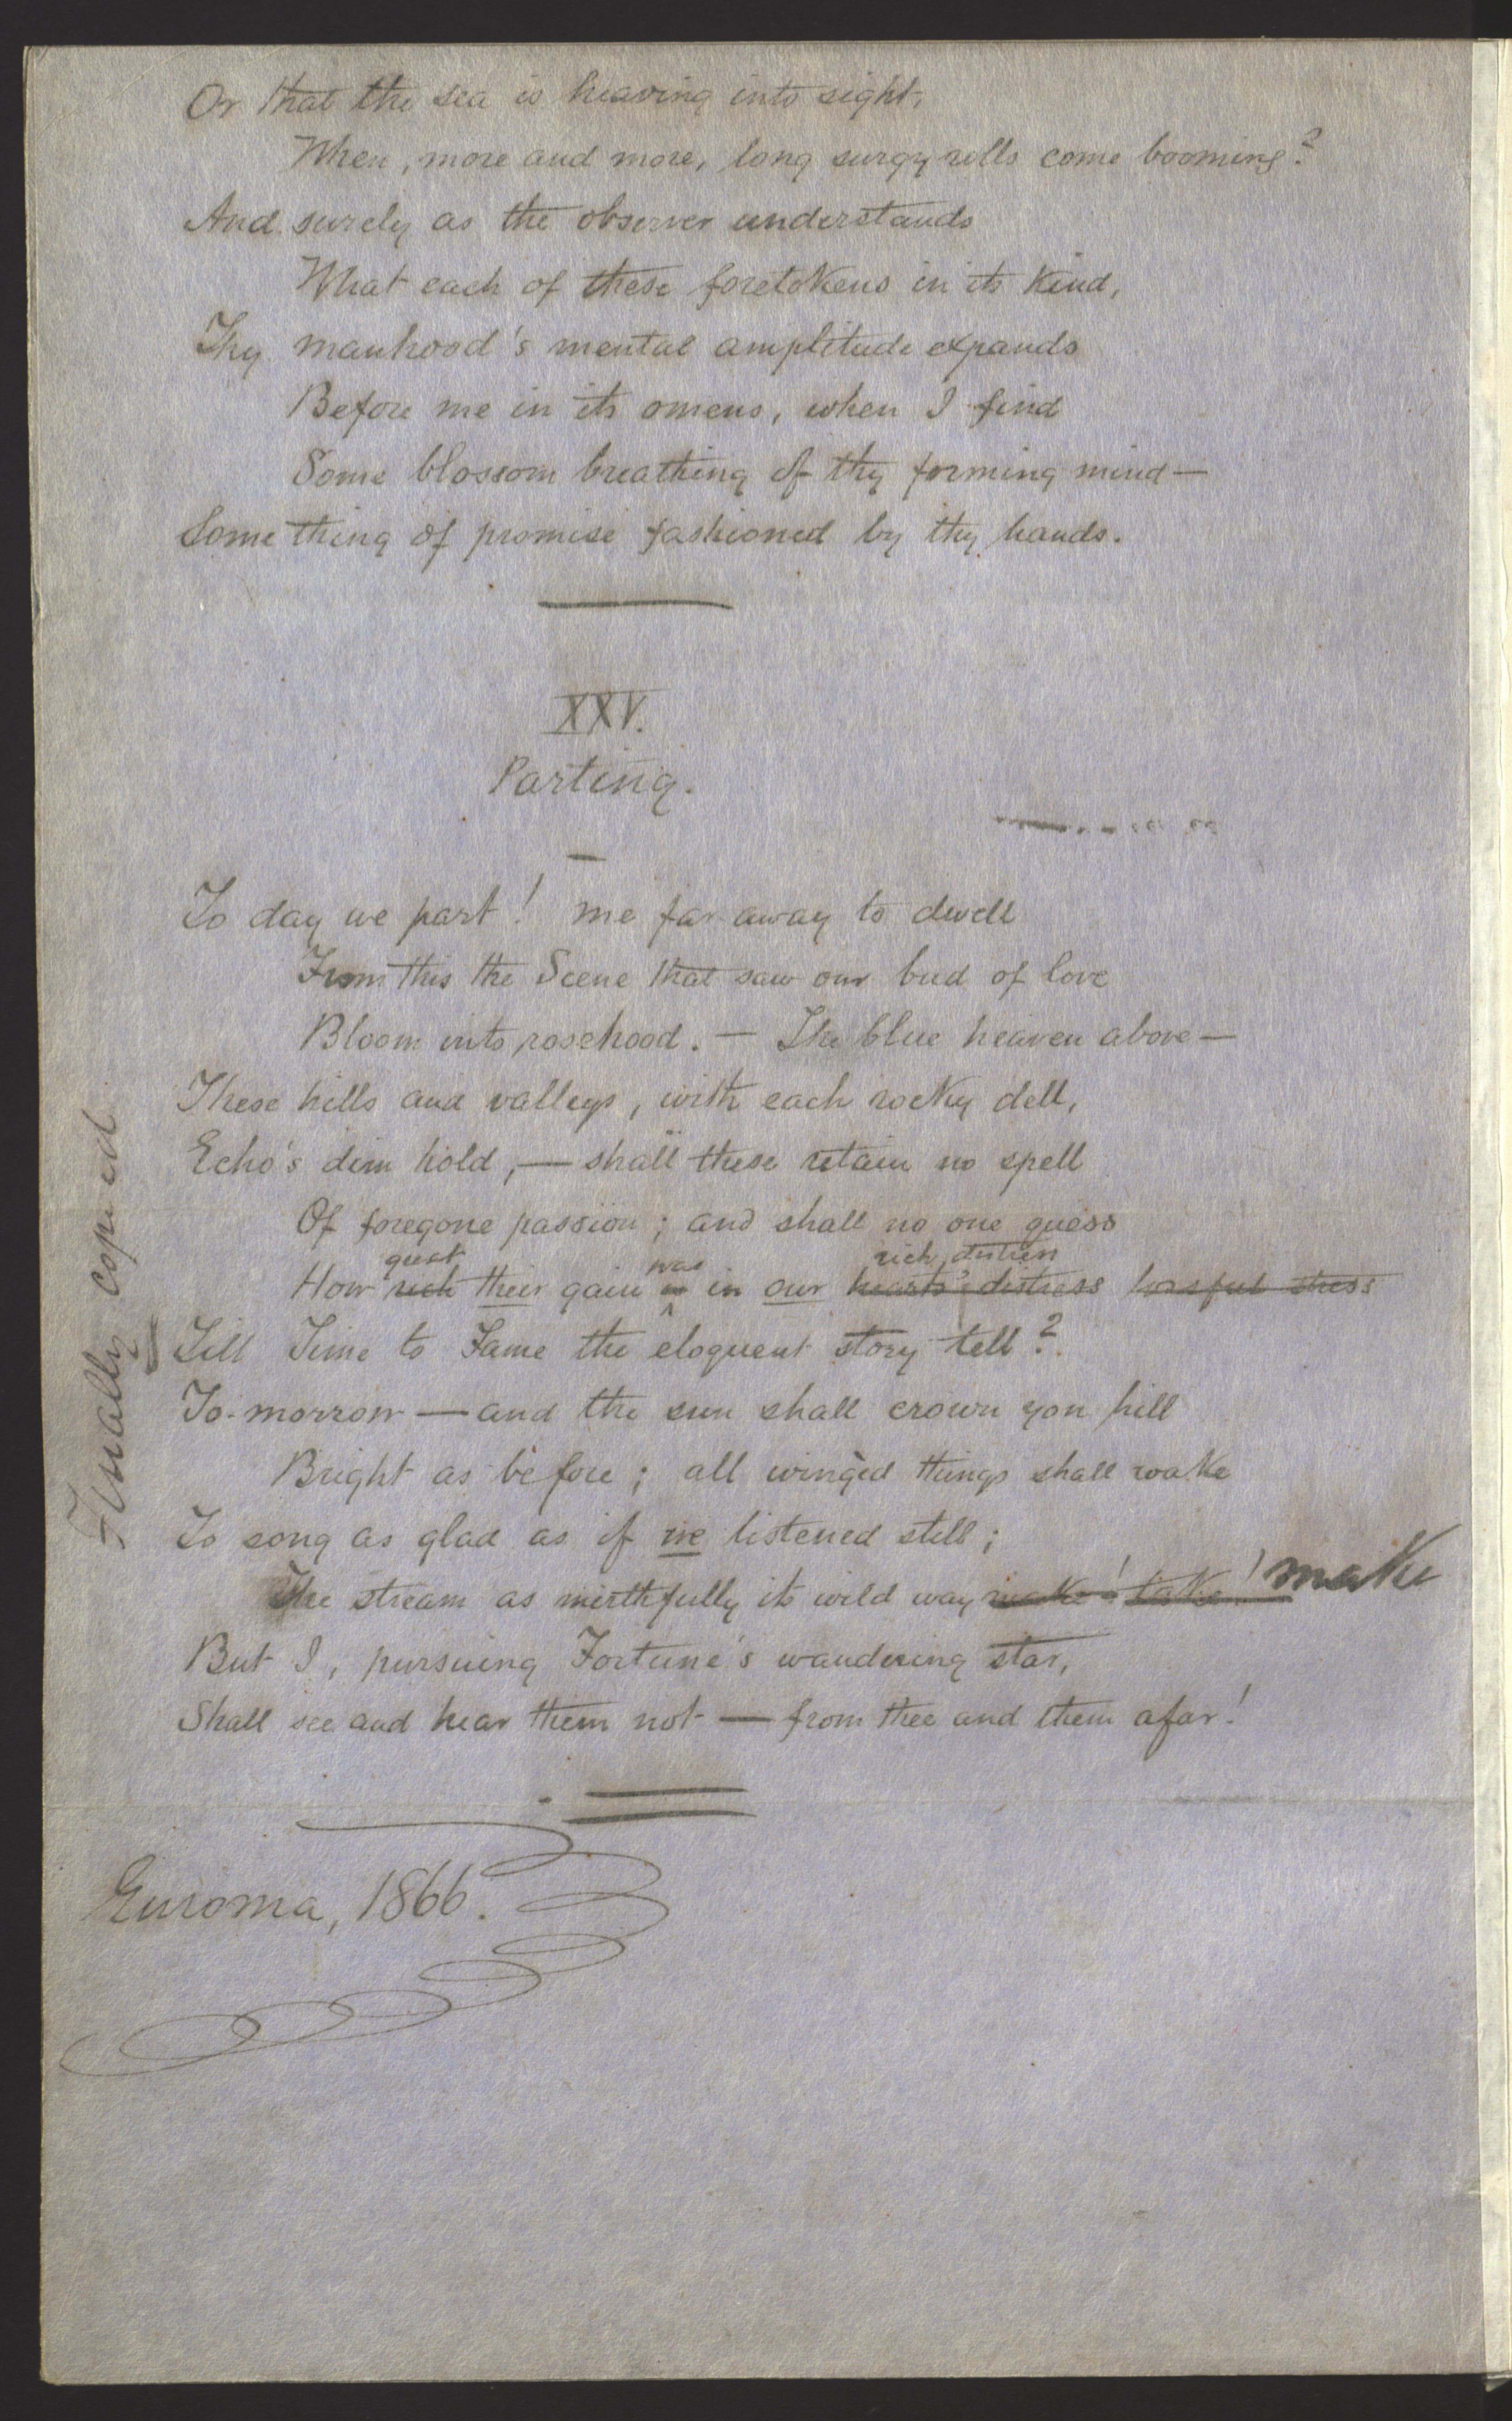 Or that the sea is heaving into sight,
When, more and more, long surgy rolls come booming?
And surely as the observer understands
What each of these foretokens in its kind,
Thy manhood's mental amplitude expands
Before me in its omens, when I find
Some blossom breathing of thy forming mind—
Some thing of promise fashioned by thy hands.
XXV.
Parting.
To day we part! me far away to dwell
From this the Scene that saw our bud of love
Bloom into rosehood. — The blue heaven above —
These hills and valleys, with each rocky dell,
Echo's dim hold, — shall these retain no spell
Of foregone passion; and shall no one guess
great was rich
How rich their gain in our hearts' distress lossful stress
Till Time to Fame the eloquent story tell?
To-morrow — and the sun shall crown yon hill
Bright as before; all wingèd things shall wake
To song as glad as if we listened still;
The stream as mirthfully its wild way make! take! make
But I, pursuing Fortune's wandering star,
Shall see and hear them not — from thee and them afar!
Euroma, 1866.
Finally copied